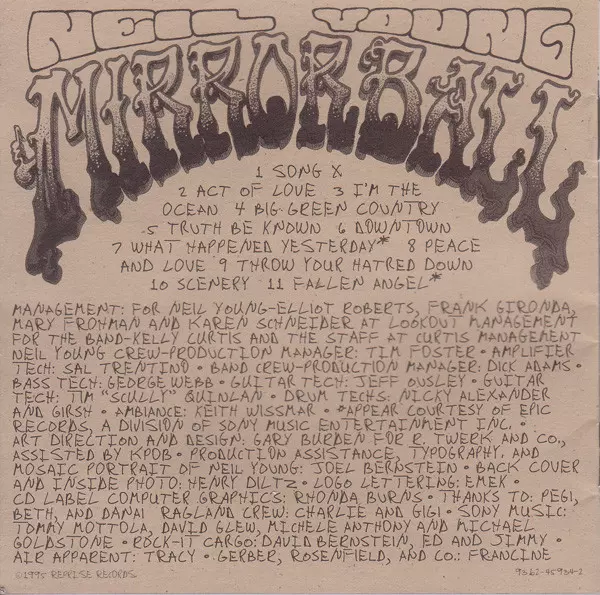 NEIL YOUNG
MIRROR BALL
1 SONG X
2 ACT OF LOVE 3 I'M THE
OCEAN 4 BIG GREEN COUNTRY
5 TRUTH BE KNOWN 6 DOWNTOWN
7 WHAT HAPPENED YESTERDAY* 8 PEACE
AND LOVE 9 THROW YOUR HATRED DOWN
10 SCENERY 11 FALLEN ANGEL*
MANAGEMENT: FOR NEIL YOUNG-ELLIOT ROBERTS, FRANK GIRONDA,
MARY FROHMAN AND KAREN SCHNEIDER AT LOOKOUT MANAGEMENT
FOR THE BAND-KELLY CURTIS AND THE STAFF AT CURTIS MANAGEMENT
NEIL YOUNG CREW-PRODUCTION MANAGER: TIM FOSTER • AMPLIFIER
TECH: SAL TRENTINO • BAND CREW-PRODUCTION MANAGER: DICK ADAMS •
BASS TECH: GEORGE WEBB • GUITAR TECH: JEFF OUSLEY • GUITAR
TECH: TIM "SCULLY" QUINLAN • DRUM TECHS: NICKY ALEXANDER
AND GIRSH • AMBIANCE: KEITH WISSMAR • *APPEAR COURTESY OF EPIC
RECORDS, A DIVISION OF SONY MUSIC ENTERTAINMENT INC. •
ART DIRECTION AND DESIGN: GARY BURDEN FOR R. TWERK AND CO.,
ASSISTED BY KPOB • PRODUCTION ASSISTANCE, TYPOGRAPHY, AND
MOSAIC PORTRAIT OF NEIL YOUNG: JOEL BERNSTEIN • BACK COVER
AND INSIDE PHOTO: HENRY DILTZ • LOGO LETTERING: EMEK •
CD LABEL COMPUTER GRAPHICS: RHONDA BURNS • THANKS TO: PEGI,
BETH, AND DANAI RAGLAND CREW: CHARLIE AND GIGI • SONY MUSIC:
TOMMY MOTTOLA, DAVID GLEW, MICHELE ANTHONY AND MICHAEL
GOLDSTONE • ROCK-IT CARGO: DAVID BERNSTEIN, ED AND JIMMY •
AIR APPARENT: TRACY • GERBER, ROSENFIELD, AND CO.: FRANCINE
©1995 REPRISE RECORDS. 9362-45934-2